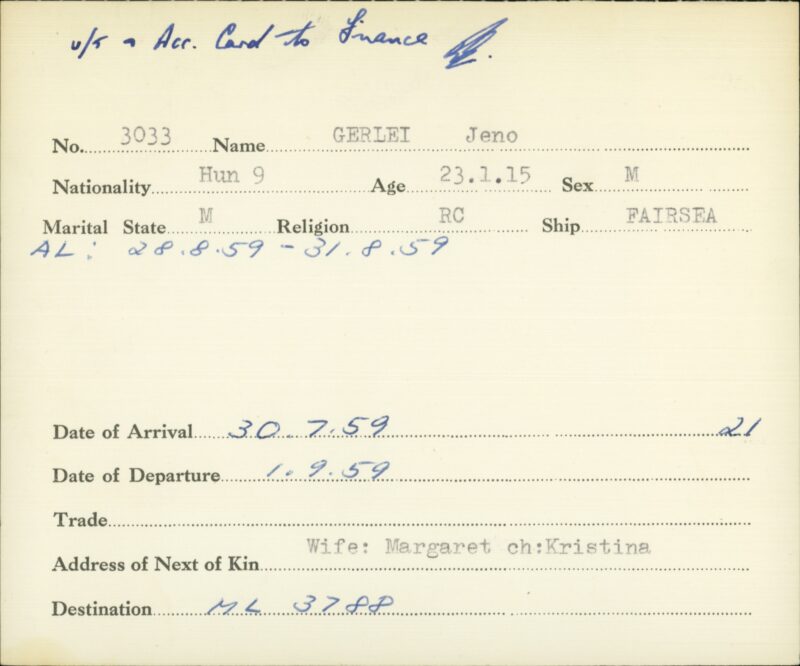 Acc. Card to Finance
No. 3033 Name GERLEI Jeno
Nationality Hun 9 Age 23.1.15 Sex M
Marital State M Religion RC Ship FAIRSEA
AL: 28.8.59 - 31.8.59
Date of Arrival 30.7.59 21
Date of Departure 1.9.59
Trade
Address of Next of Kin Wife: Margaret ch:Kristina
Destination ML 3788